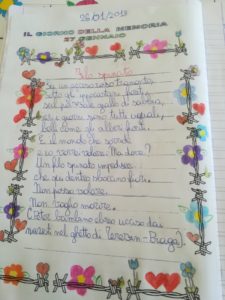 26/01/2019
IL GIORNO DELLA MEMORIA
27 GENNAIO
Filo spinato
Su un acceso rosso tramonto,
sotto gli ippocastani fioriti,
sul piazzale giallo di sabbia,
ieri i giorni sono tutti uguali,
belli come gli alberi fioriti.
È il mondo che sorride
e io vorrei volare. Ma dove?
Un filo spinato impedisce
che qui dentro sboccino fiori.
Non posso volare.
Non voglio morire.
(Peter, bambino ebreo ucciso dai
nazisti nel ghetto di Terezin-Praga).